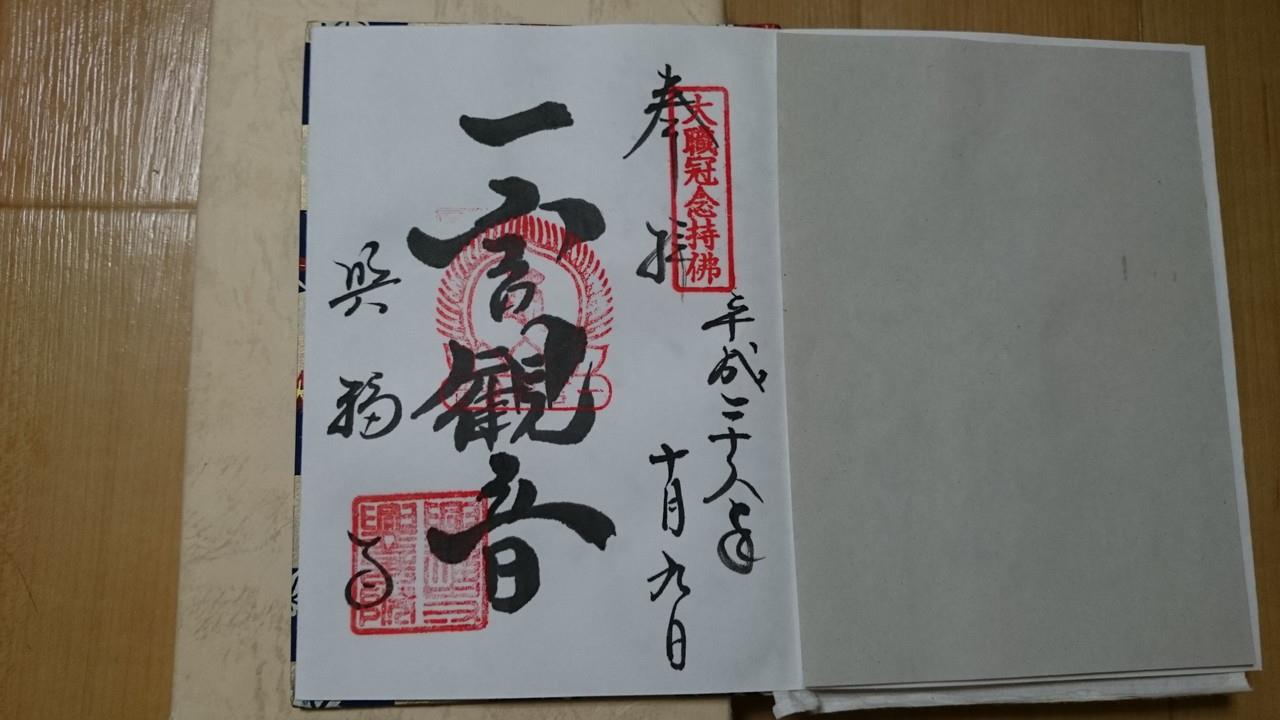 奉拝
大職冠念持佛
平成二十八年
十月九日
一言観音
興福寺